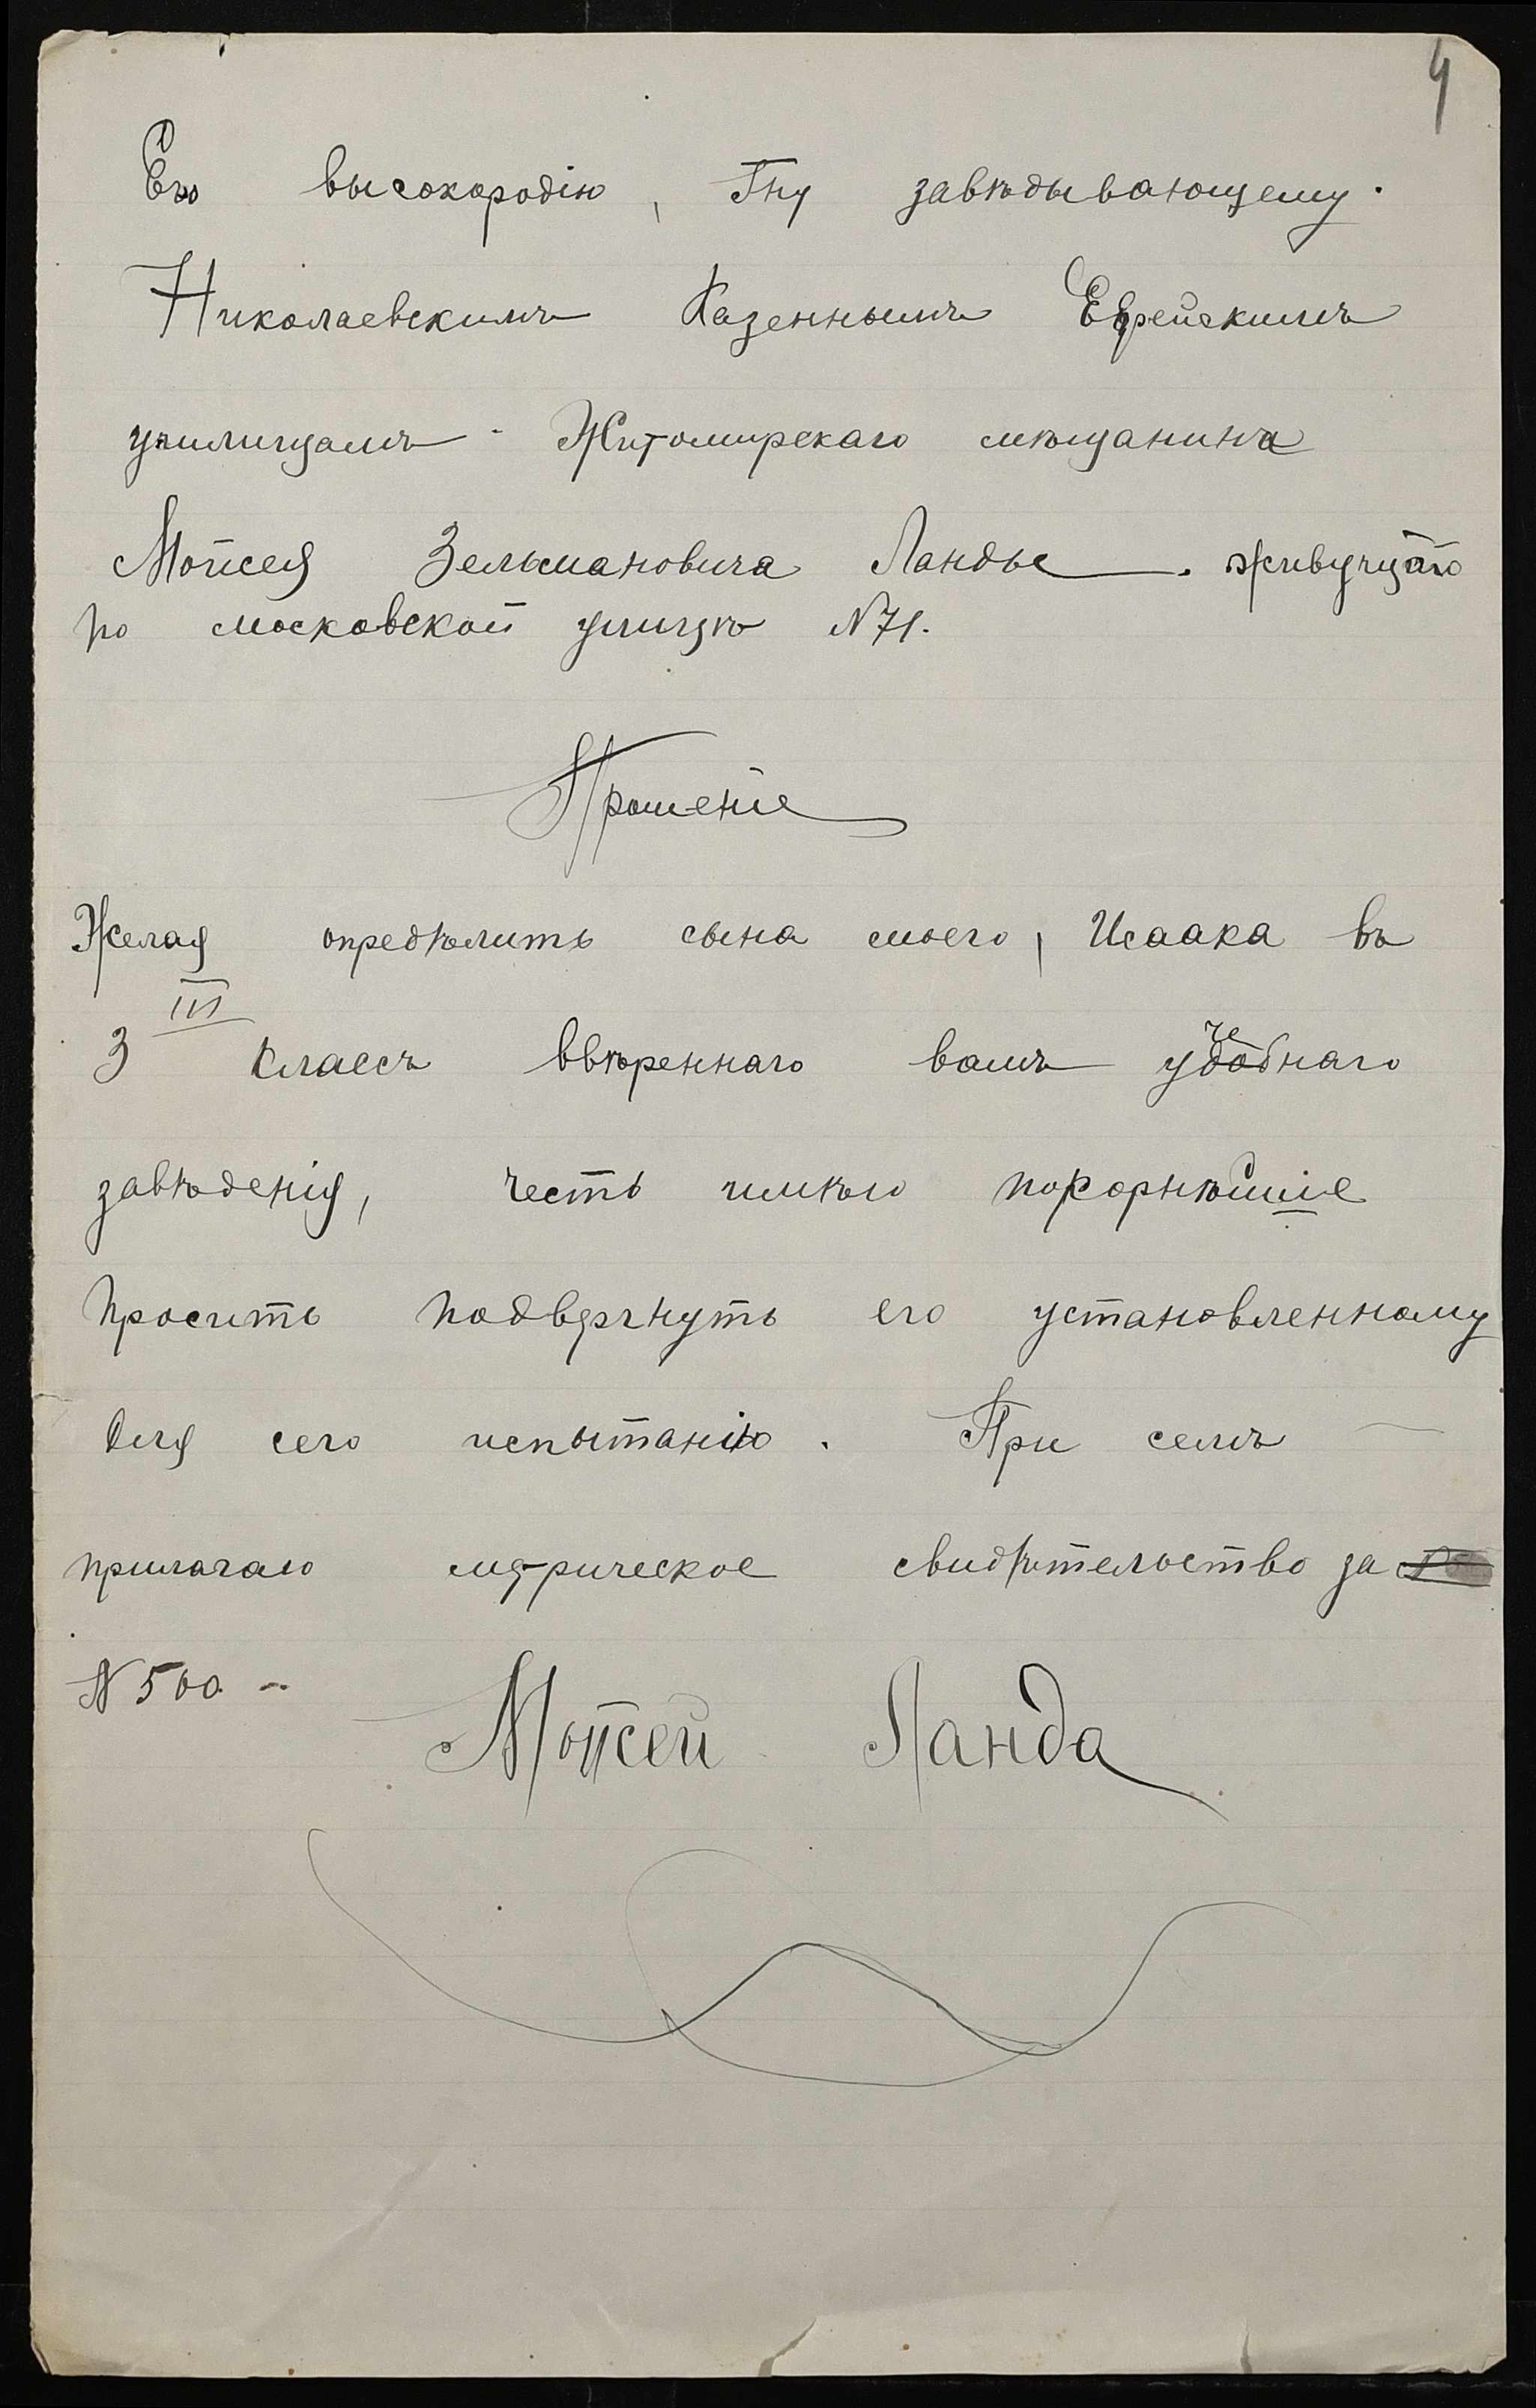 4
Его высокородію, Гну завѣдывающему.
Николаевскимъ Казеннымъ Еврейскимъ
училищамъ - Житомирскаго мѣщанина
Мойсея Зельмановича Ланды. живущаго
по московской улицѣ N 71.
Прошеніе
Желая опредѣлить сына моего, Исаака въ
3 III классъ ввѣреннаго вамъ учебнаго
завѣденія, честь имѣю покорнѣйше
просить подвергнуть его установленному
для сего испытанію. При семъ
прилагаю метрическое свидѣтельство за
N 500 -
Мойсей Ланда